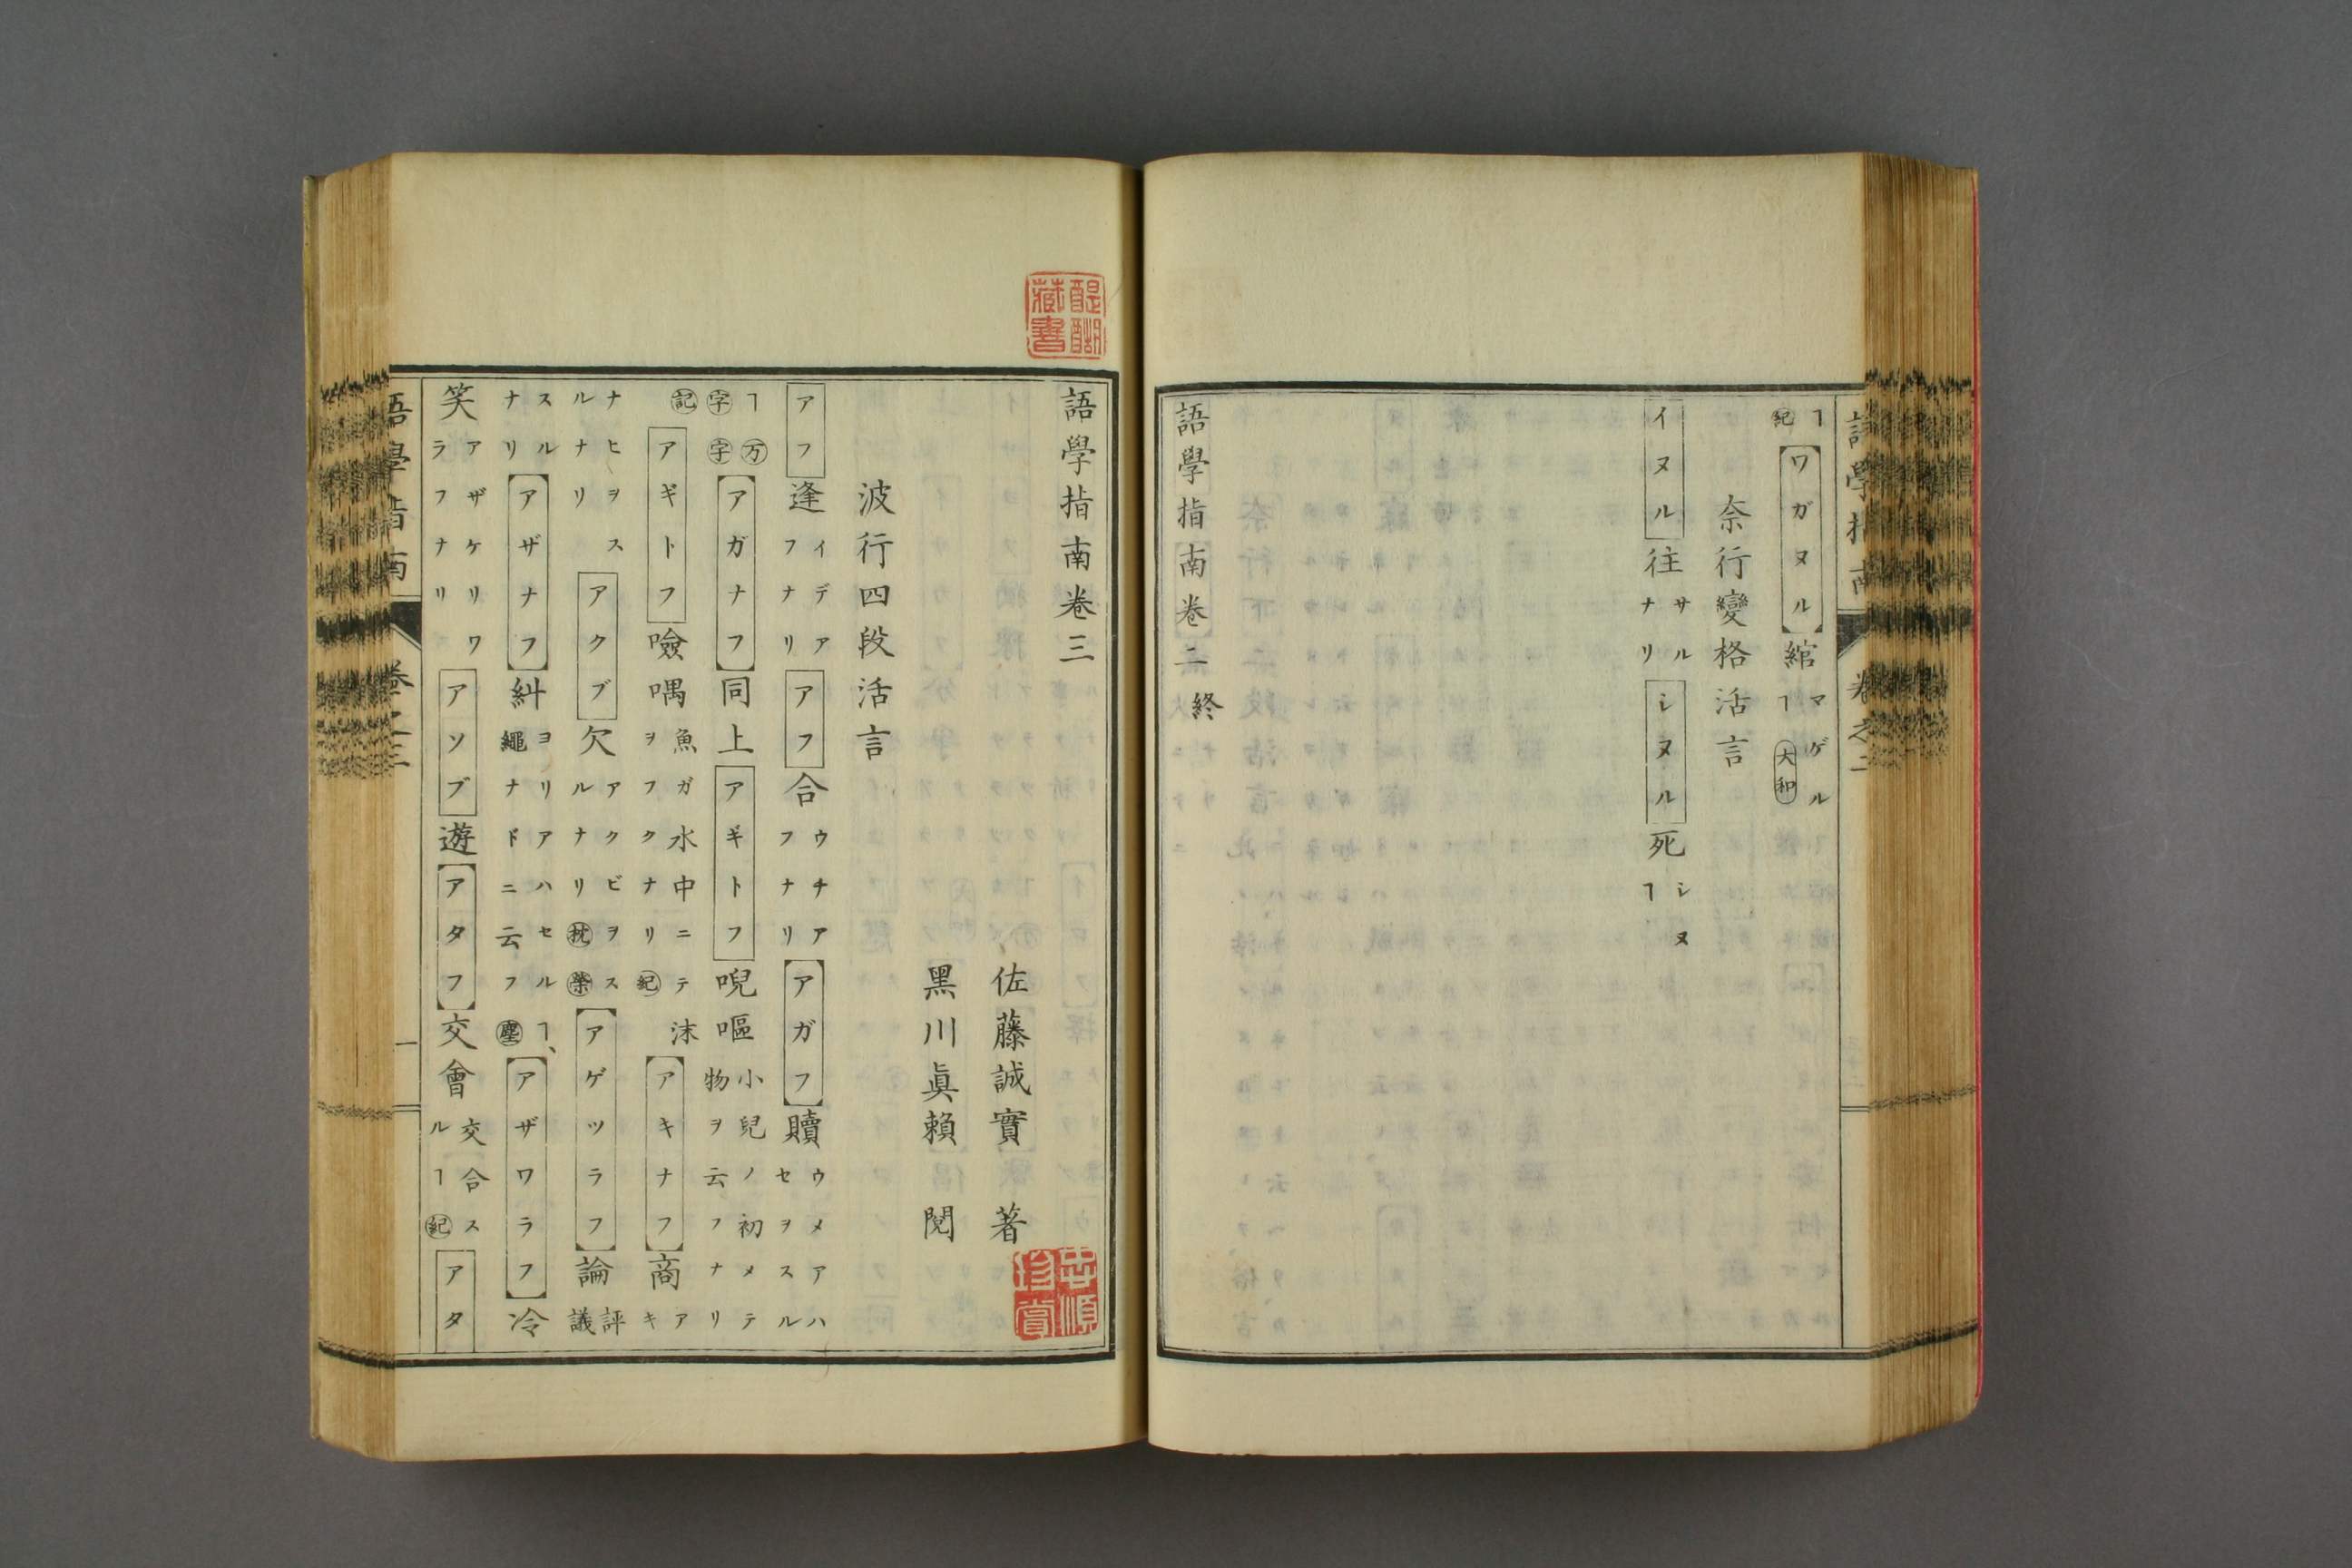 語學指南 卷之二
ヿ紀ワガヌル綰マゲルヿ大和
奈行變格活言
イヌル往サルナリシヌル死シヌヿ
語學指南卷二終
醍醐藏書
語學指南卷三
佐藤誠實 著
忠順珍賞
黑川眞賴 閱
波行四段活言
アフ逢イデアフナリアフ合ウチアフナリアガフ贖ウメアハセヲスル
ヿ万字字アガナフ同上アギトフ唲嘔小兒ノ初メテ物ヲ云フナリ
記アギトフ噞喁魚ガ水中ニテ沫ヲフクナリ紀アキナフ商アキ
ナヒヲスルナリアクブ欠アクビヲスルナリ枕榮アゲツラフ論評議
スルナリアザナフ糾ヨリアハセルヿ、繩ナドニ云フ塵アザワラフ冷
笑アザケリワラフナリアソブ遊アタフ交會交合スルヿ紀アタ
語學指南 卷之三 一